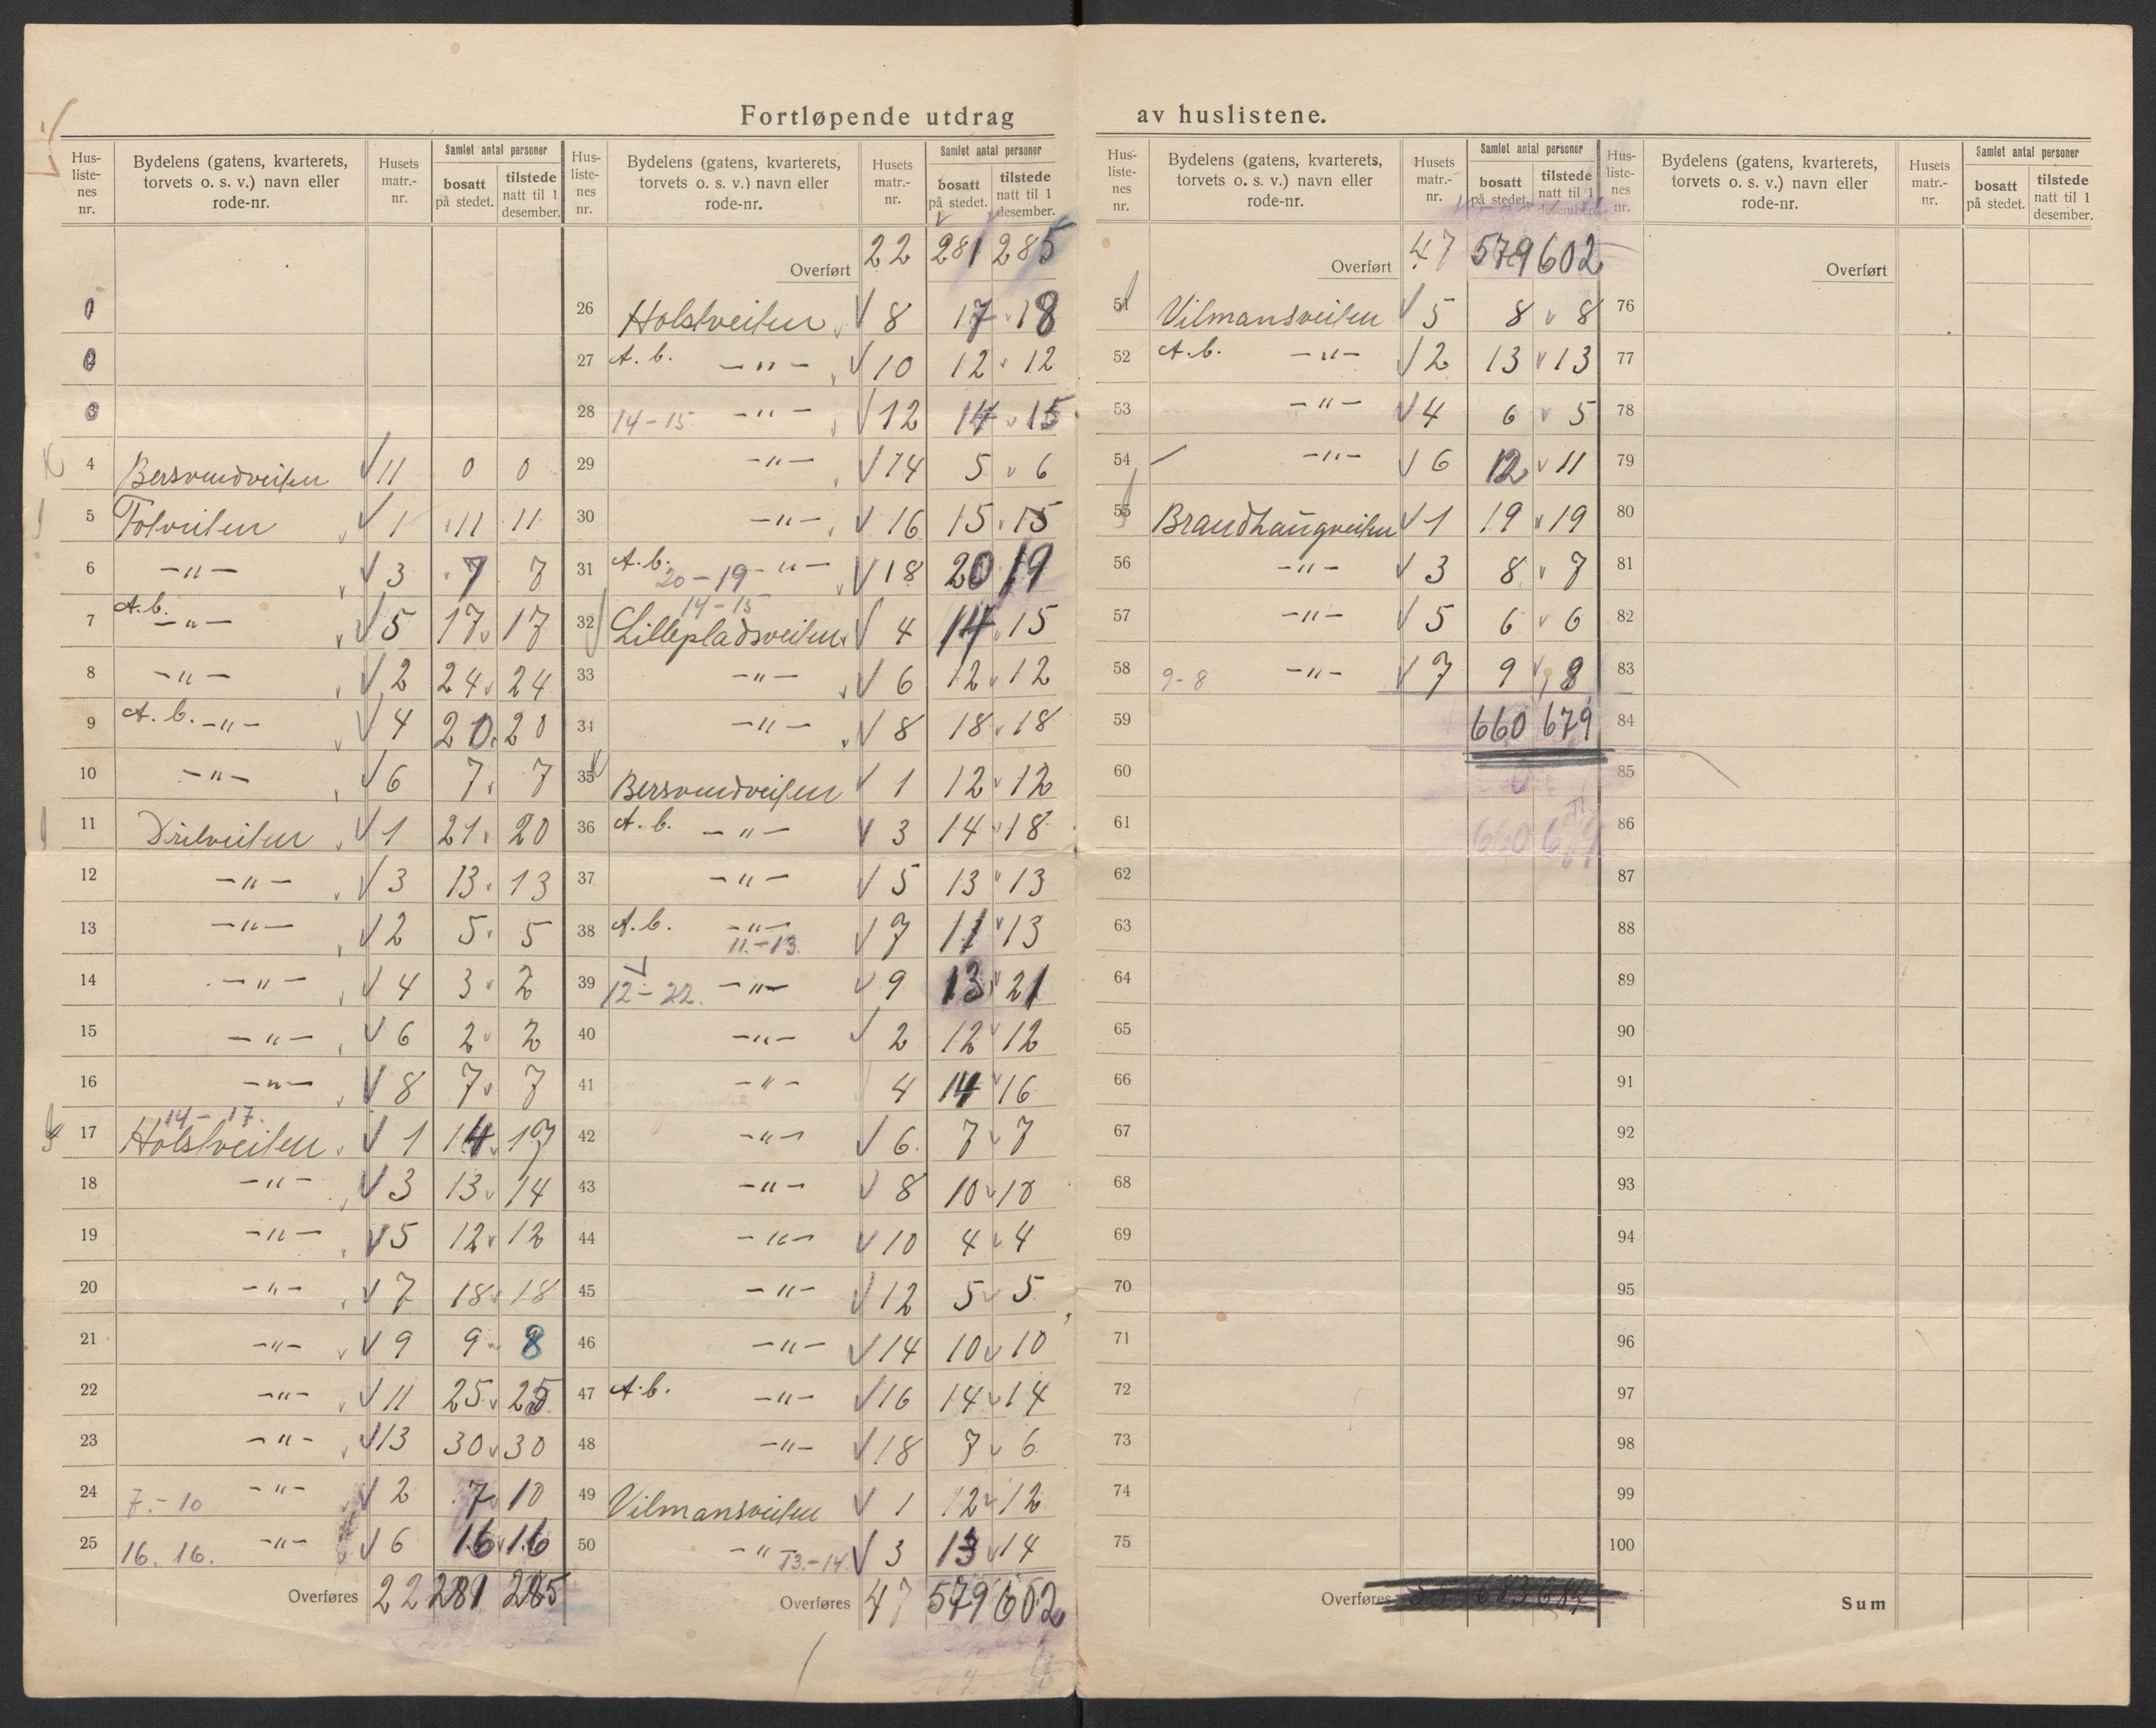 Fortløpende utdrag av huslistene.
Hus-liste-nes nr. Bydelens (gatens, kvarterets, torvets o. s. v.) navn eller rode-nr. Husets matr.-nr. Samlet antal personer bosatt på stedet. tilstede natt til 1 desember.
4 Bersvendveiten 11 0 0
5 Totveiten 1 11 11
6 -"- 3 7 7
7 A.b. -"- 5 17 17
8 -"- 2 24 24
9 A.b. -"- 4 20 20
10 -"- 6 7 7
11 Drilveiten 1 21 20
12 -"- 3 13 13
13 -"- 2 5 5
14 -"- 4 3 2
15 -"- 6 2 2
16 -"- 8 7 7
14-17.
17 Holstveiten 1 14 17
18 -"- 3 13 14
19 -"- 5 12 12
20 -"- 7 18 18
21 -"- 9 9 8
22 -"- 11 25 25
23 -"- 13 30 30
24 7.-10 -"- 2 7 10
25 16. 16. -"- 6 16 16
Overføres 22 281 285
Hus-liste-nes nr. Bydelens (gatens, kvarterets, torvets o. s. v.) navn eller rode-nr. Husets matr.-nr. Samlet antal personer bosatt på stedet. tilstede natt til 1 desember.
Overført 22 281 285
26 Holstveiten 8 17 18
27 A.b. -"- 10 12 12
28 14-15 -"- 12 14 15
29 -"- 14 5 6
30 -"- 16 15 15
31 A.b. 20-19 -"- 18 20 19
14-15
32 Lillepladsveiten 4 14 15
33 -"- 6 12 12
34 -"- 8 18 18
35 Bersvendveiten 1 12 12
36 A.b. -"- 3 14 18
37 -"- 5 13 13
38 A.b. -"- 11.-13. 7 11 13
39 12-22. -"- 9 13 21
40 -"- 2 12 12
41 -"- 4 14 16
42 -"- 6 7 7
43 -"- 8 10 10
44 -"- 10 4 4
45 -"- 12 5 5
46 -"- 14 10 10
47 A.b. -"- 16 14 14
48 -"- 18 7 6
49 Vilmansveiten 1 12 12
50 -"- 13.-14. 3 13 14
Overføres 47 579 602
Hus-liste-nes nr. Bydelens (gatens, kvarterets, torvets o. s. v.) navn eller rode-nr. Husets matr.-nr. Samlet antal personer bosatt på stedet. tilstede natt til 1 desember.
Overført 47 579 602
51 Vilmansveiten 5 8 8
52 A.b. -"- 2 13 13
53 -"- 4 6 5
54 -"- 6 12 11
55 Brandhaugveiten 1 19 19
56 -"- 3 8 7
57 -"- 5 6 6
58 9-8 -"- 7 9 8
59 660 679
60
61 660 679
62
63
64
65
66
67
68
69
70
71
72
73
74
75
Overføres
Hus-liste-nes nr. Bydelens (gatens, kvarterets, torvets o. s. v.) navn eller rode-nr. Husets matr.-nr. Samlet antal personer bosatt på stedet. tilstede natt til 1 desember.
Overført
76
77
78
79
80
81
82
83
84
85
86
87
88
89
90
91
92
93
94
95
96
97
98
99
100
Sum